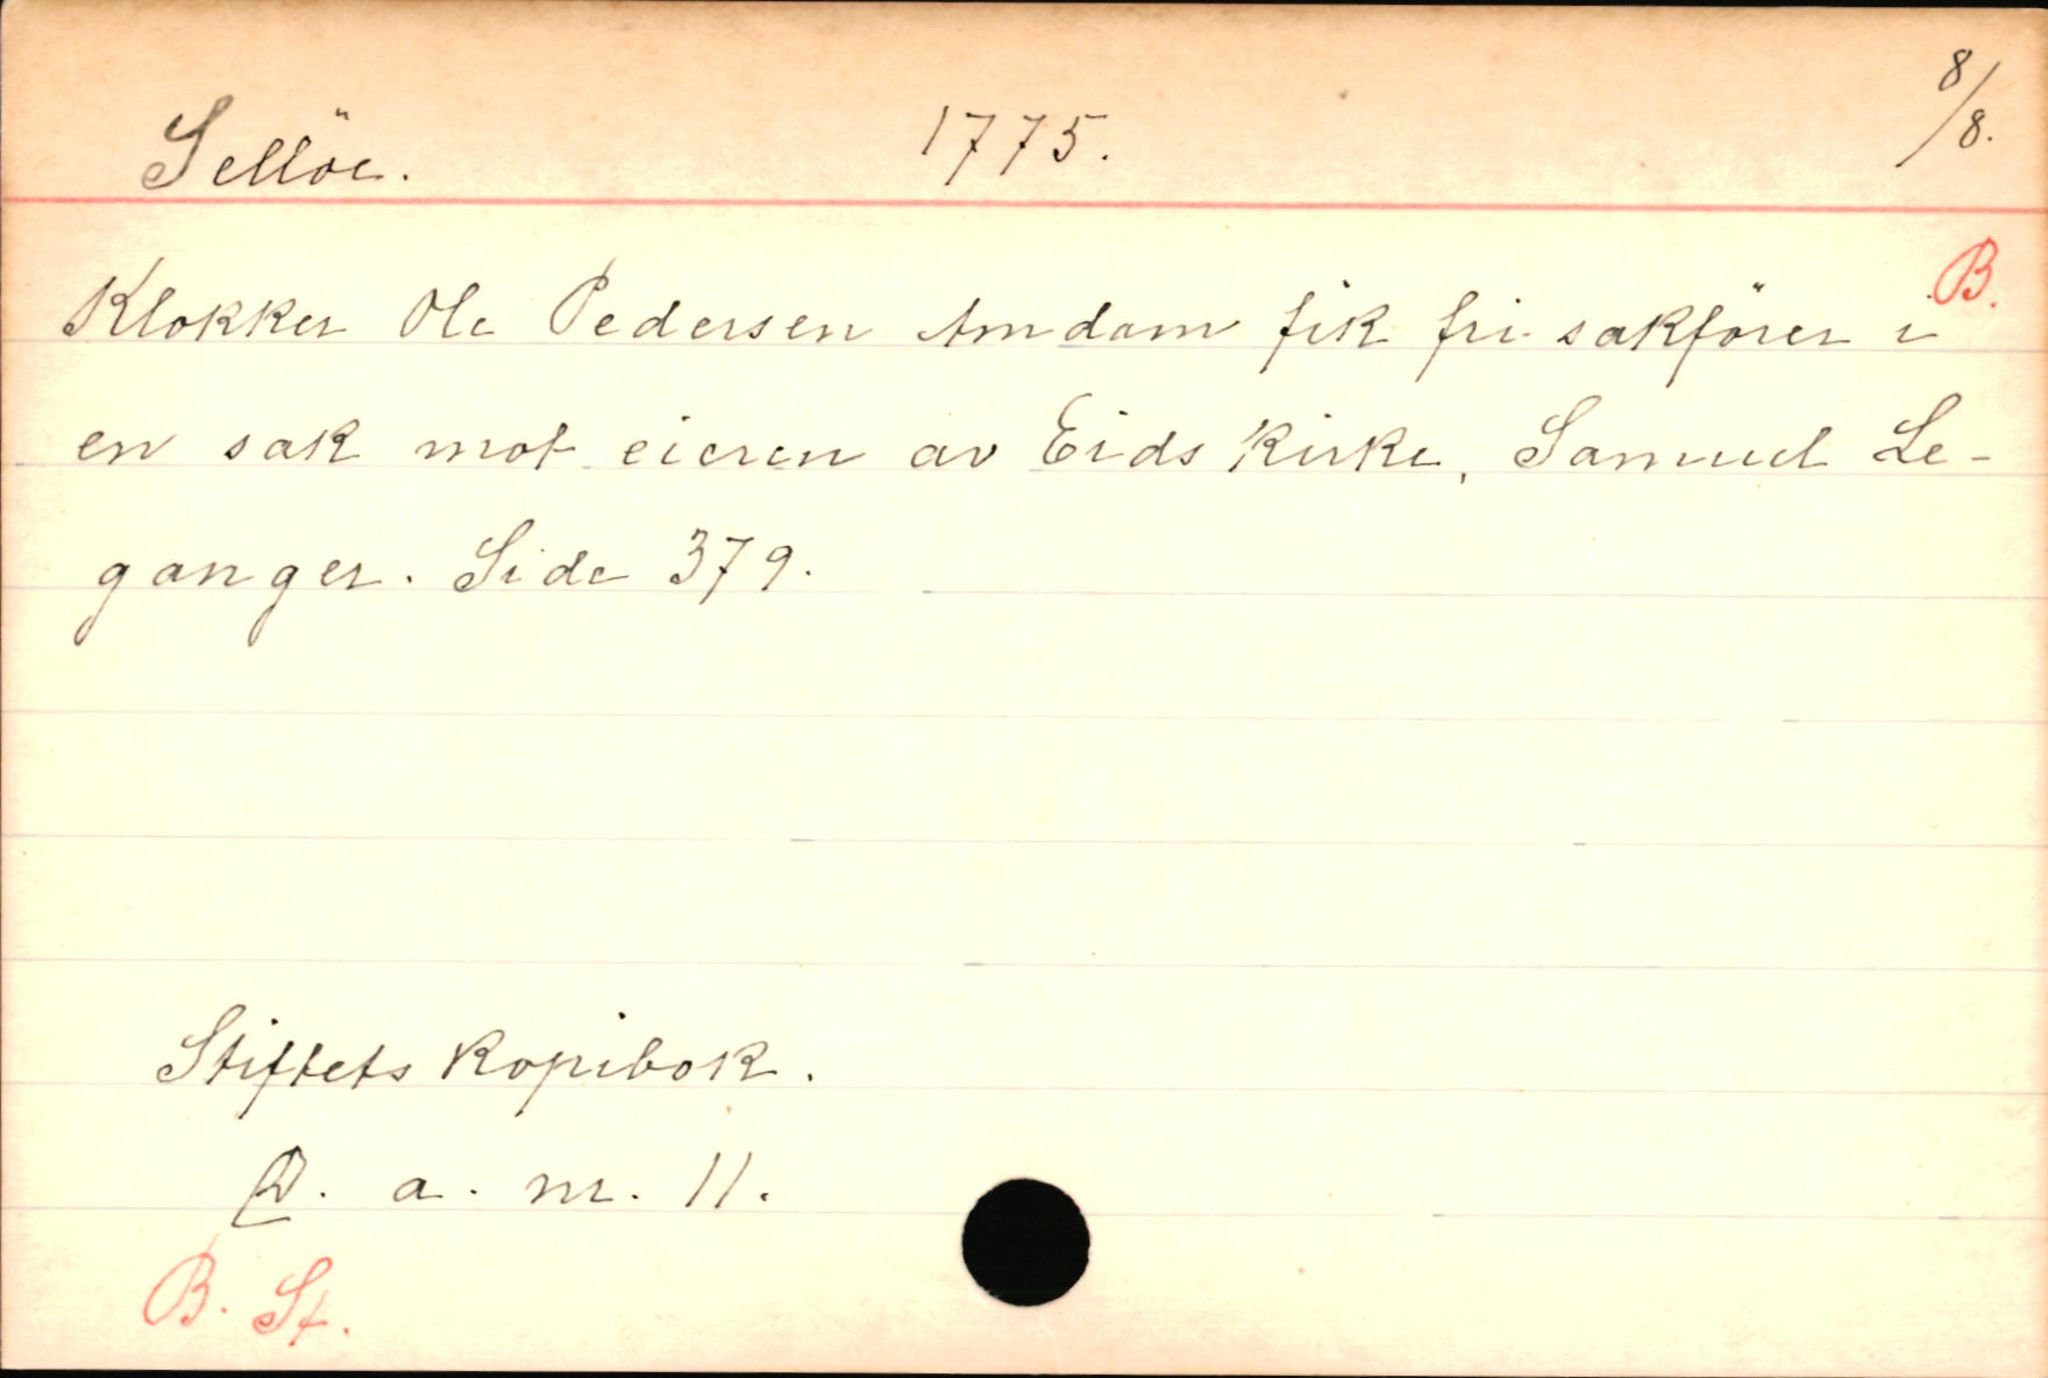 Sellöe. 1775. 8/8.
B.
Klokker Ole Pedersen Amdam fik fri sakförer i
en sak mot eieren av Eids Kirke, Samuel Le-
ganger. Side 379.
Stiftets Kopibok.
a. nr. 11.
B. St.